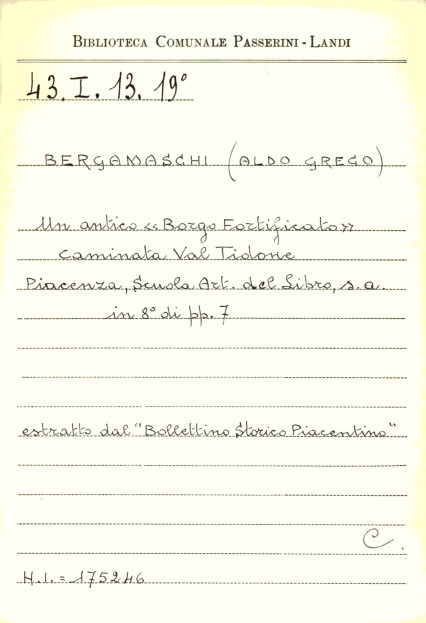 BIBLIOTECA COMUNALE PASSERINI - LANDI
43. I. 13. 19°
BERGAMASCHI (ALDO GREGO)
Un antico «Borgo Fortificato»
Caminata Val Tidone
Piacenza, Scuola Art. del Libro, s.a.
in 8° di pp. 7
estratto dal "Bollettino Storico Piacentino"
C.
H.I. = 175246